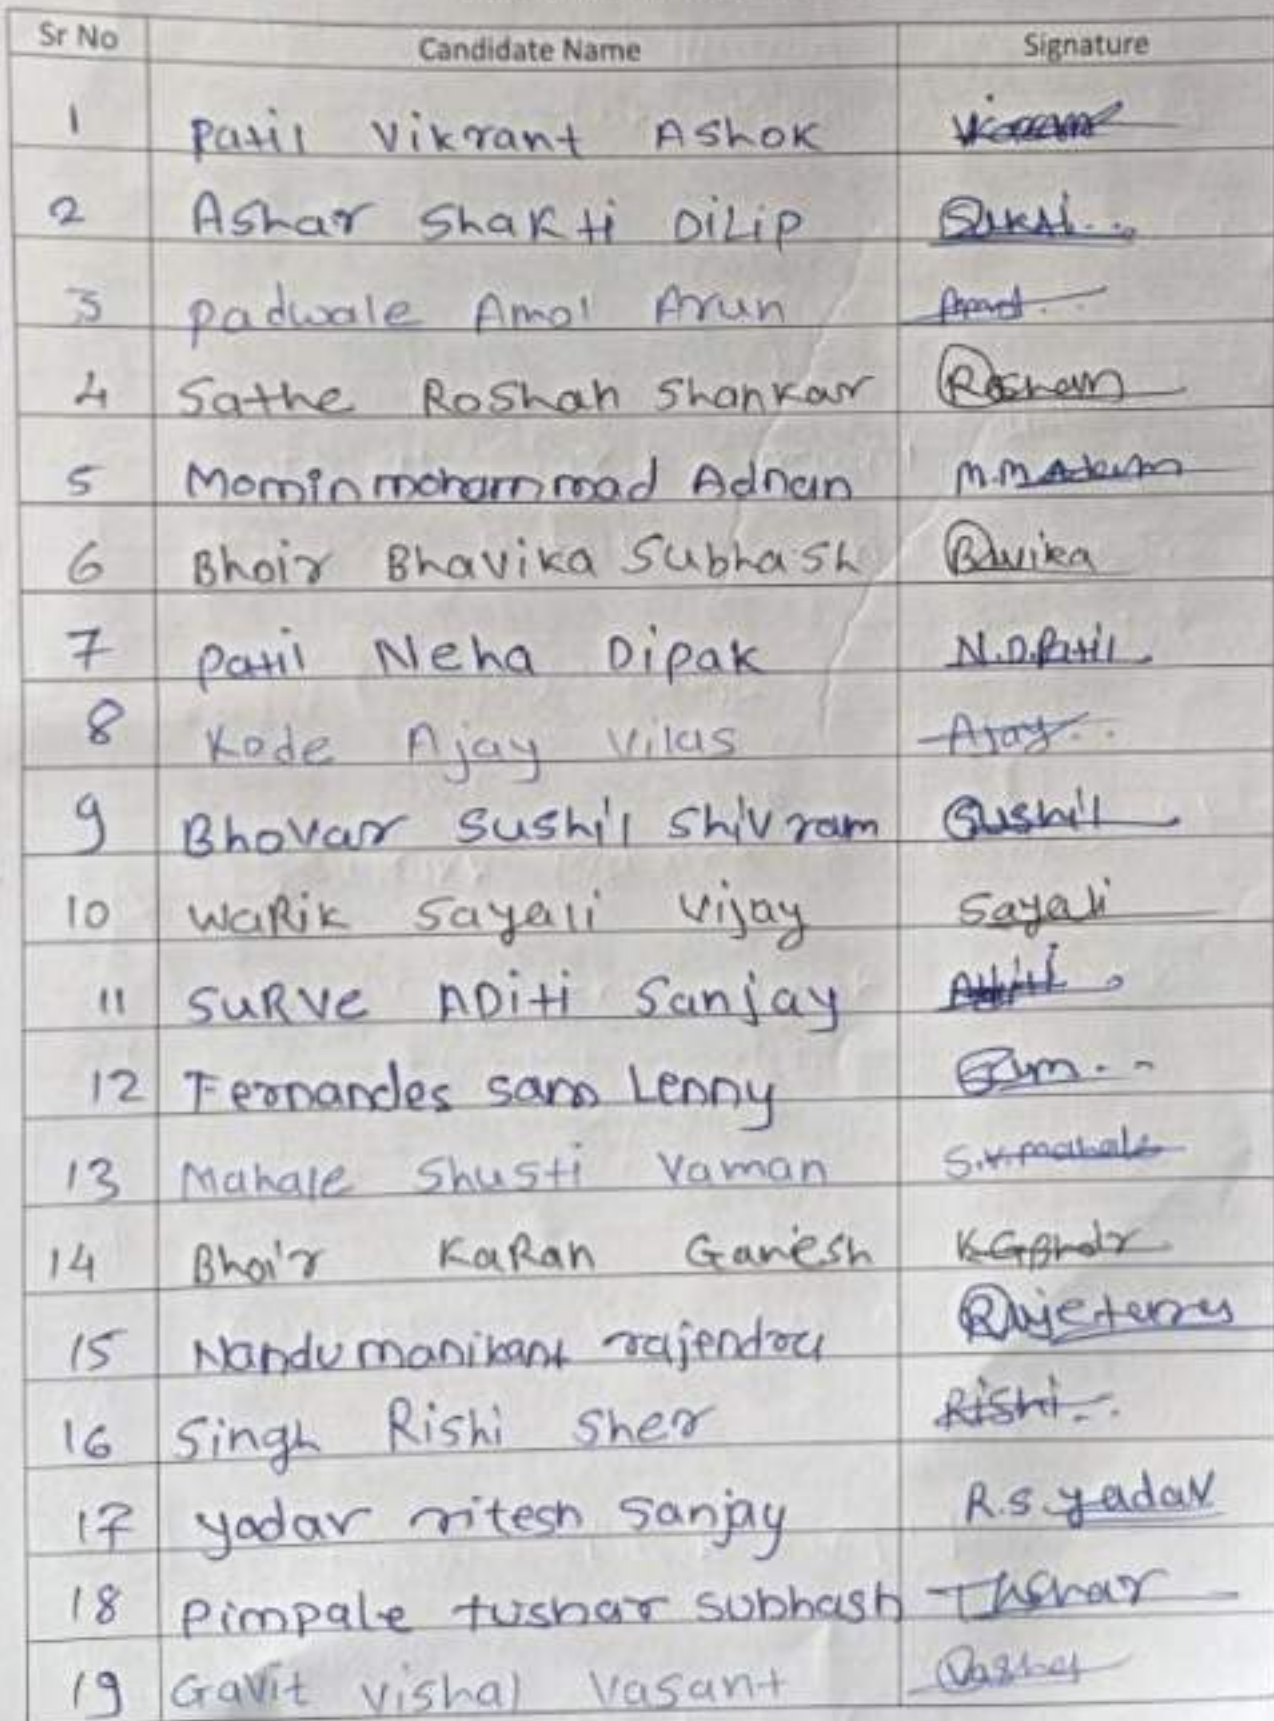 Sr No Candidate Name Signature
1 Patil Vikrant Ashok
2 Ashar Shakti Dilip
3 padwale Amol Arun
4 Sathe Roshan Shankar Roshan
5 Momin mohammad Adnan
6 Bhoir Bhavika Subhash Bvika
7 Patil Neha Dipak N.D.Patil
8 Kode Ajay Vilas Ajay
9 Bhovar Sushil Shivram Sushil
10 WaRik Sayali Vijay Sayali
11 SURVe ADiti Sanjay
12 Fernandes sam Lenny Sam
13 Mahale Shusti Vaman S.V.mahale
14 Bhoir KaRan Ganesh K.G.Bhoir
15 Nandu manikant rajendra
16 Singh Rishi Sher Rishi
17 yadav ritesh Sanjay R.S.yadav
18 Pimpale tushar subhash Tushar
19 Gavit vishal Vasant